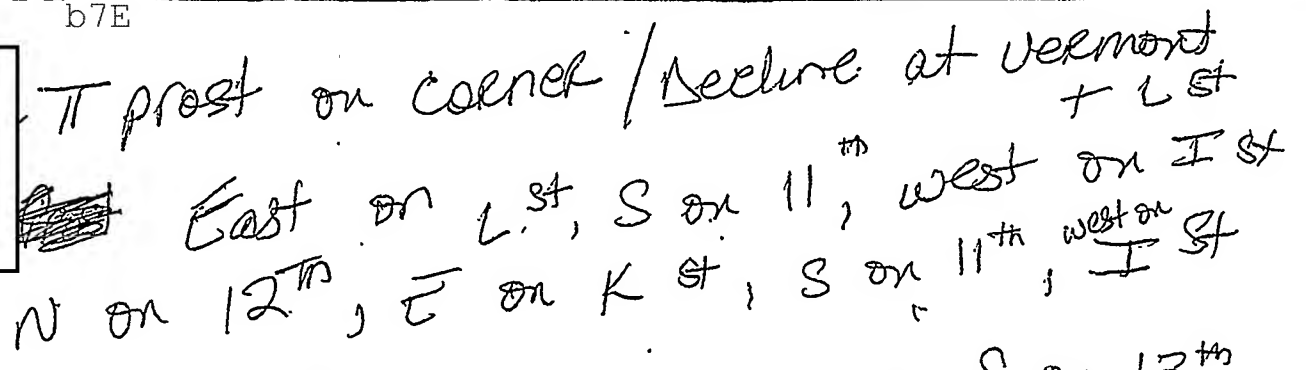 b7E
π prost on corner / Decline at Vermont
+ L St
East on L St, S on 11th, west on I St
N on 12th, E on K St, S on 11th, west on I St
S on 12th